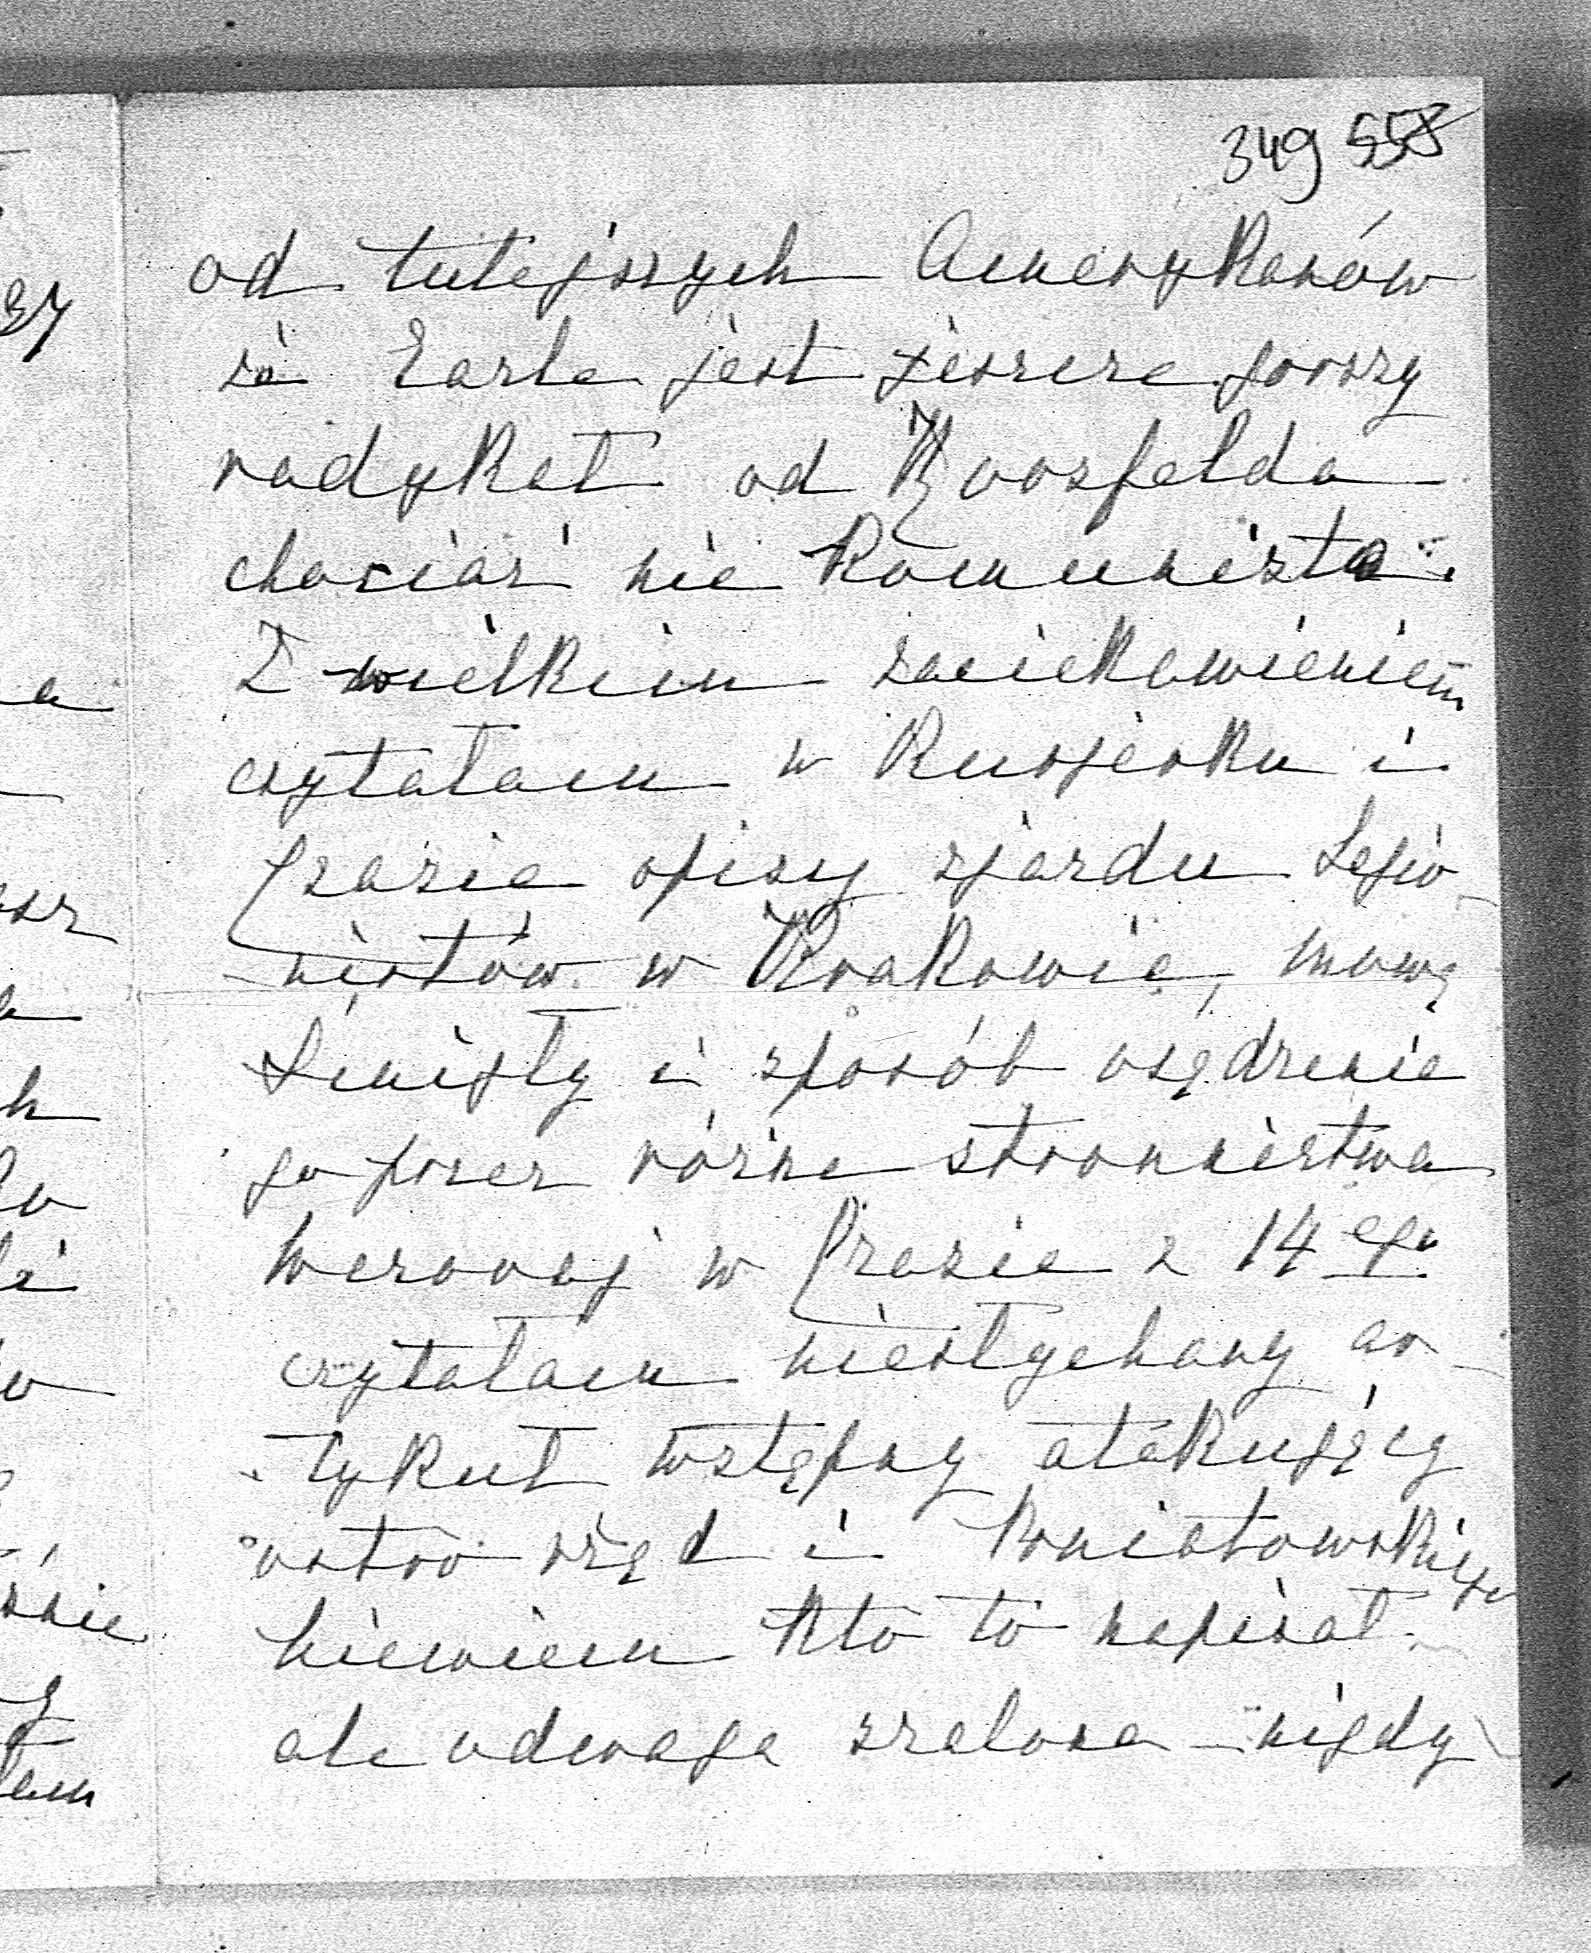 349 558
od tutejszych Amerykanów
że Earle jest jeszcze gorszy
radykał od Roosfelda
chociaż nie komunista.
Z wielkiem zaciekawieniem
czytałam w Kurjerku i
Czasie opisy zjazdu Legio-
nistów w Krakowie, mowę
Śmigły i sposób osądzenie
go przez różne stronnictwa
Wczoraj w Czasie z 14 ego
czytałam niesłychany ar-
tykuł wstępny atakujący
ostro rząd i Kwiatowskiego
niewiem kto to napisał
ale odwaga szalona nigdy
37